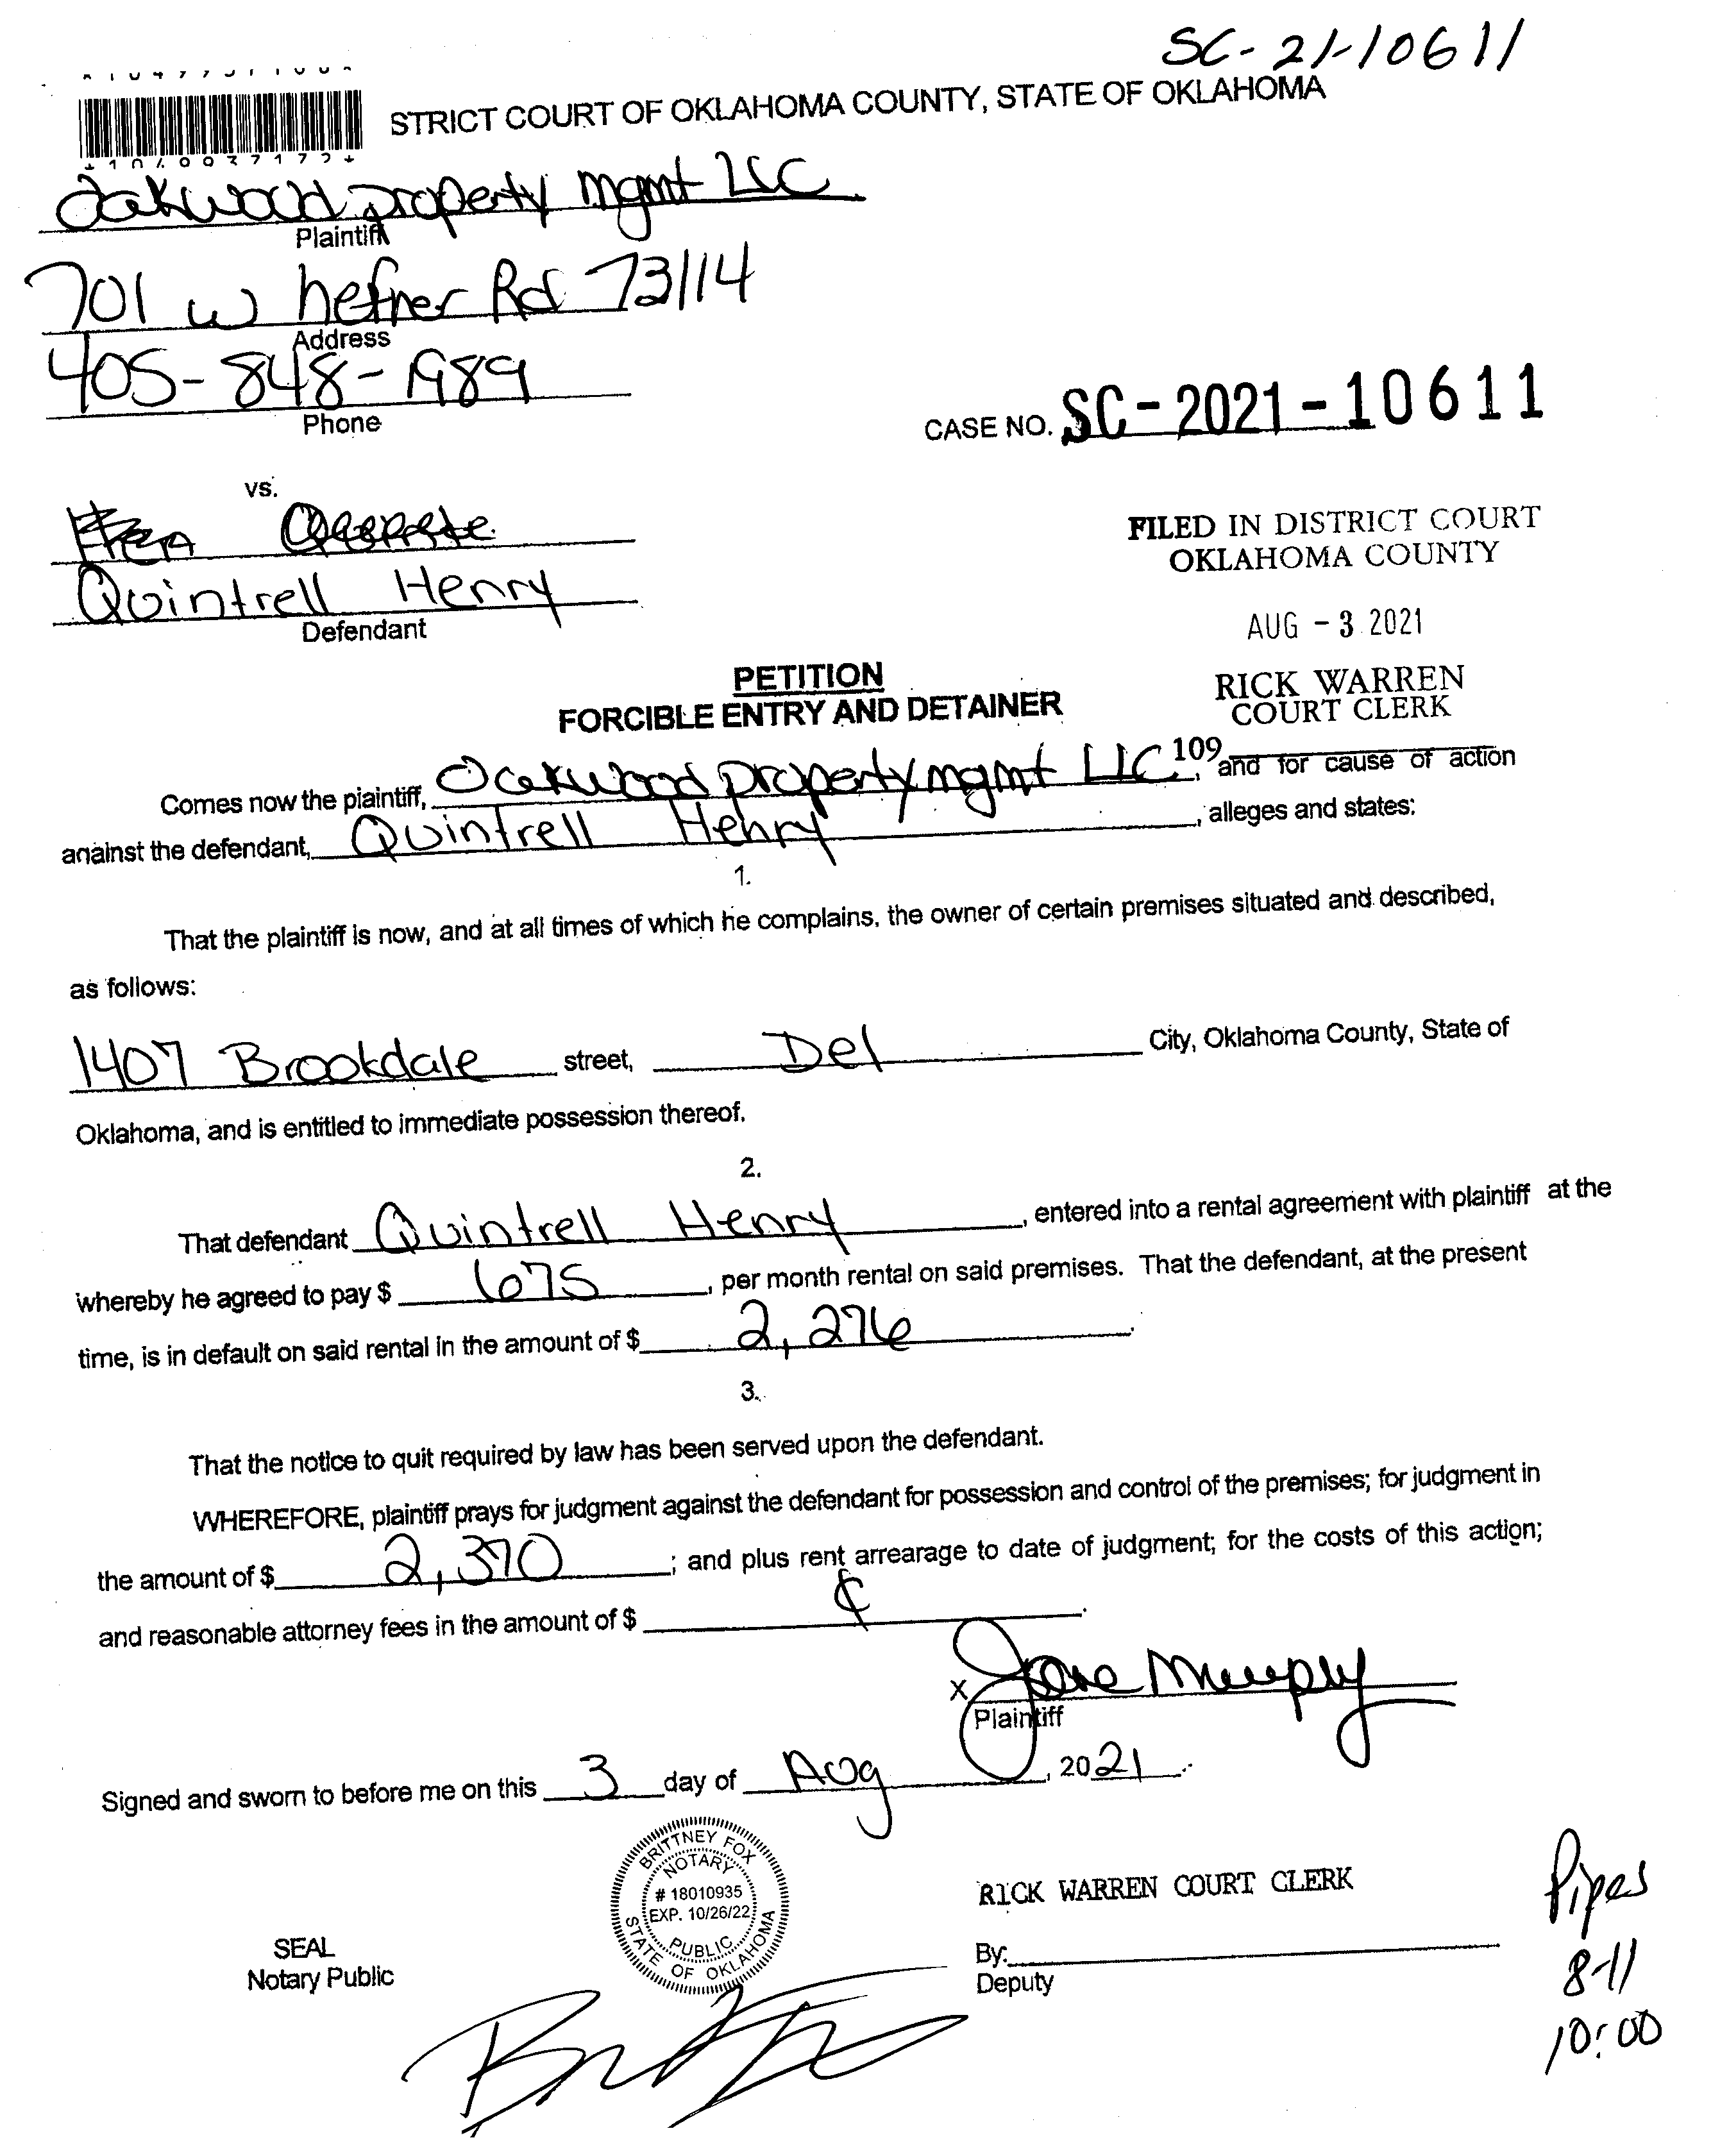 SC-21-10611
STRICT COURT OF OKLAHOMA COUNTY, STATE OF OKLAHOMA
Oakwood property mgmt LLC
Plaintiff
701 w hefner Rd 73114
Address
405-848-1989
Phone
CASE NO. SC-2021-10611
vs.
Quintrell Henry
Defendant
FILED IN DISTRICT COURT
OKLAHOMA COUNTY
AUG - 3 2021
RICK WARREN
COURT CLERK
109
PETITION
FORCIBLE ENTRY AND DETAINER
Comes now the plaintiff, Oakwood property mgmt LLC, and for cause of action
against the defendant, Quintrell Henry, alleges and states:
1.
That the plaintiff is now, and at all times of which he complains, the owner of certain premises situated and described,
as follows:
1407 Brookdale street, Del City, Oklahoma County, State of
Oklahoma, and is entitled to immediate possession thereof.
2.
That defendant Quintrell Henry, entered into a rental agreement with plaintiff at the
whereby he agreed to pay $ 675, per month rental on said premises. That the defendant, at the present
time, is in default on said rental in the amount of $ 2,276.
3.
That the notice to quit required by law has been served upon the defendant.
WHEREFORE, plaintiff prays for judgment against the defendant for possession and control of the premises; for judgment in
the amount of $ 2,370; and plus rent arrearage to date of judgment; for the costs of this action;
and reasonable attorney fees in the amount of $ ¢.
x Jane Murphy
Plaintiff
Signed and sworn to before me on this 3 day of Aug, 2021.
BRITTNEY FOX
NOTARY
# 18010935
EXP. 10/26/22
PUBLIC
STATE OF OKLAHOMA
SEAL
Notary Public
RICK WARREN COURT CLERK
By:
Deputy
Pipes
8-11
10:00